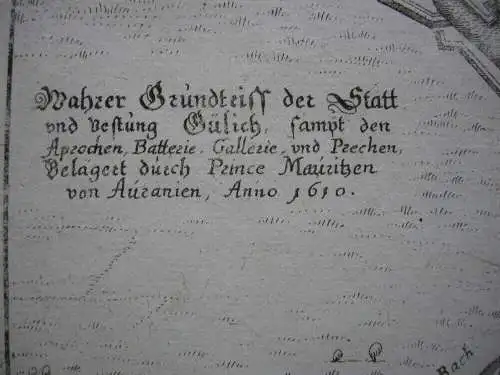 Wahrer Gründtriss der Statt
vnd Vestüng Gülich, sampt den
Aprochen, Batterie, Gallerie, vnd Prechen,
Belägert dürch Prince Maüritzen
von Aüranien, Anno 1610.
Bach